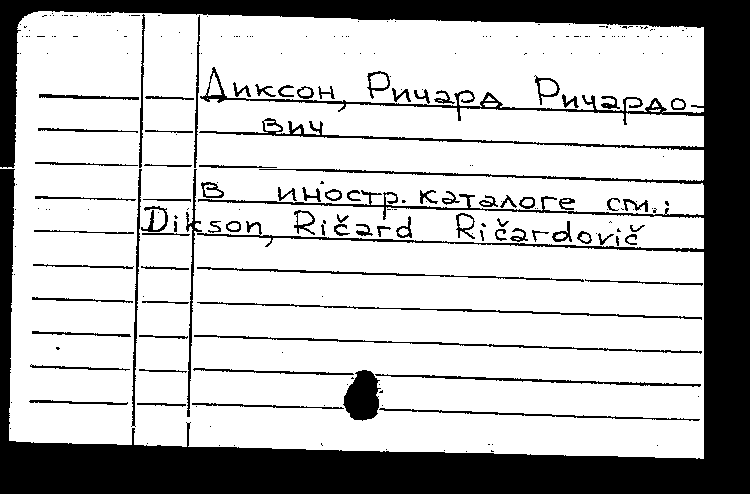 Диксон, Ричард Ричардо-
вич
в иностр. каталоге см.:
Dikson, Ričard Ričardovič